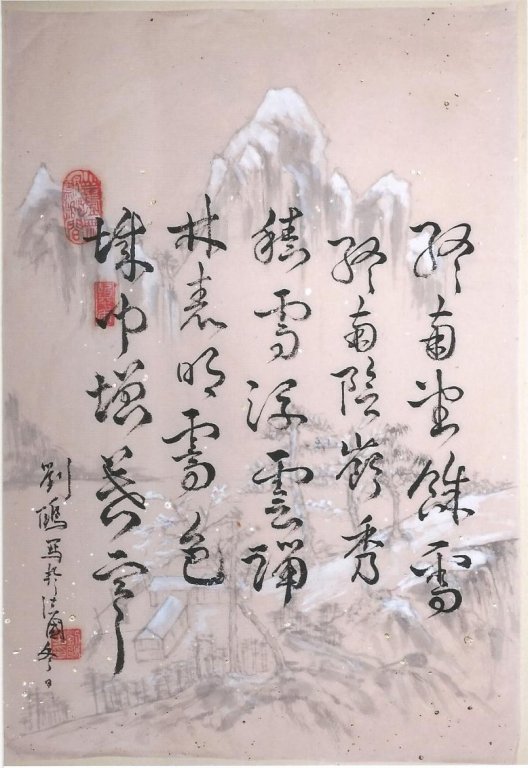 終南望餘雪
終南陰嶺秀
積雪浮雲端
林表明霽色
城中增暮寒
劉鷗写於法國冬日